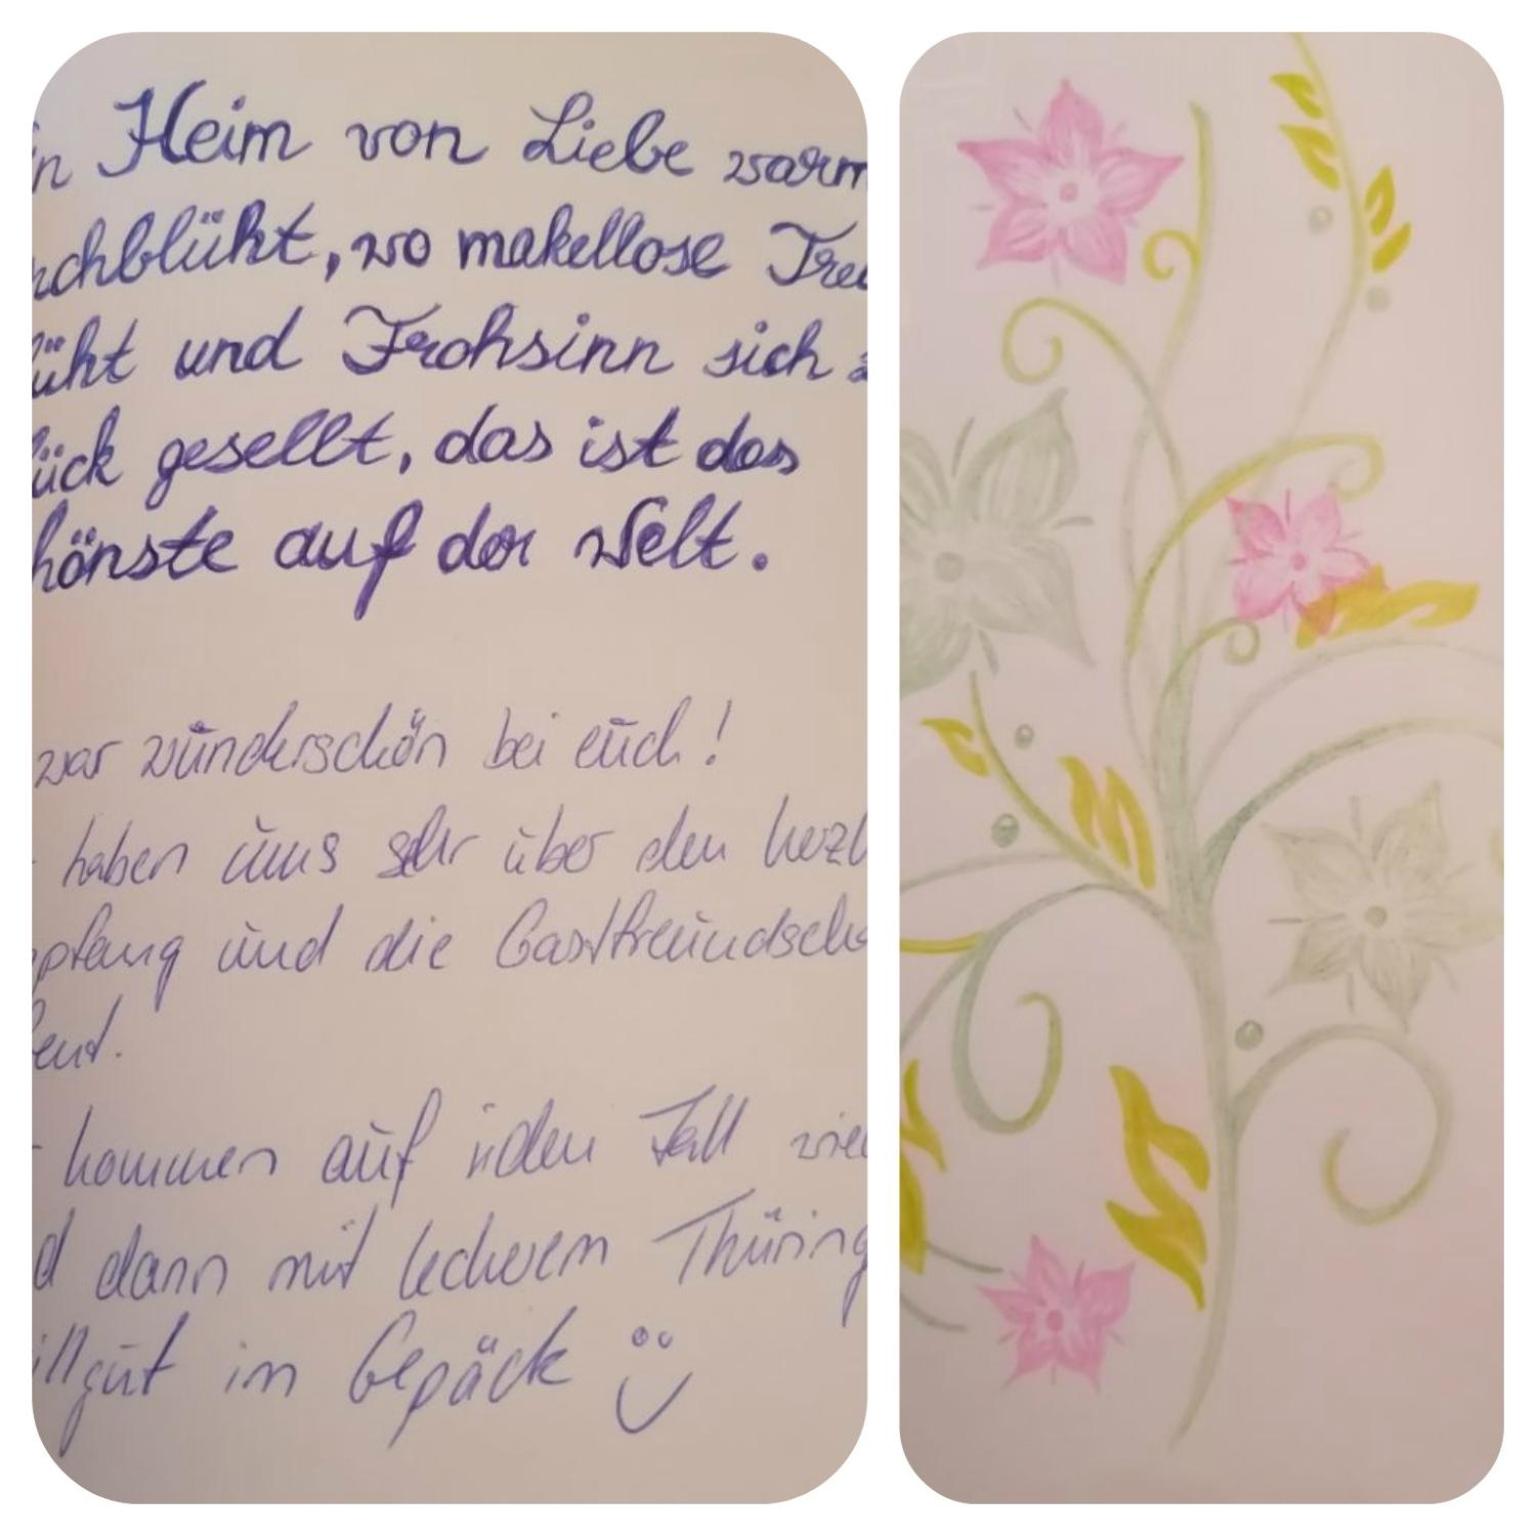 in Heim von Liebe warm
rchblüht, wo makellose Treu
üht und Frohsinn sich z
lück gesellt, das ist das
hönste auf der Welt.
war wunderschön bei euch!
haben uns sehr über den herzl
pfang und die Gastfreundscha
eut.
kommen auf jden Fall wied
d dann mit leckerem Thüring
illgut im Gepäck